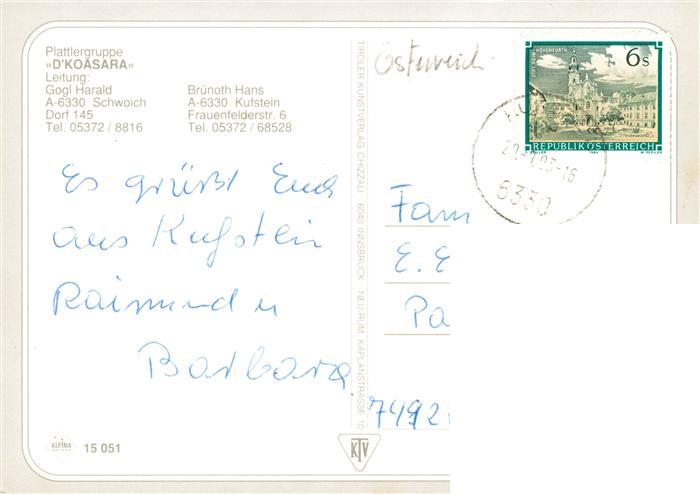 Plattlergruppe
»D'KOASARA«
Leitung:
Gogl Harald
A-6330 Schwoich
Dorf 145
Tel. 05372 / 8816
Brünoth Hans
A-6330 Kufstein
Frauenfelderstr. 6
Tel. 05372 / 68528
Es grüßt Euch
aus Kufstein
Raimund u
Barbara
ALPINA
15 051
TIROLER KUNSTVERLAG CHIZZALI 6040 INNSBRUCK NEU-RUM KAPLANSTRASSE 10
KTV
Österreich
STIFT REIN-HOHENFURTH
6 S
REPUBLIK ÖSTERREICH
6330
Fam
E. E
Pa
7492